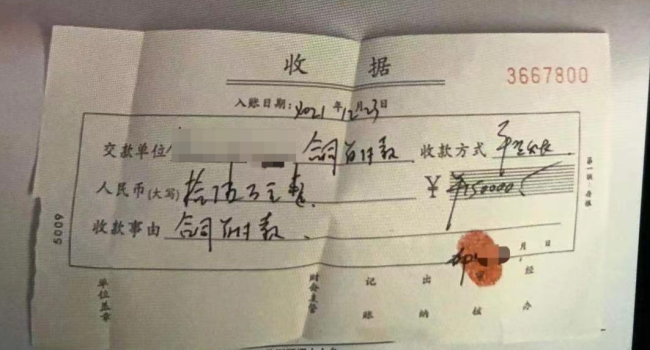 收 据
3667800
入账日期：2021年12月23日
交款单位 合同首付款 收款方式
人民币(大写) 拾伍万元整 ￥ ￥150000
收款事由 合同首付款.
月 日
5009
单位盖章 财会主管 记账 出纳 审核 经办